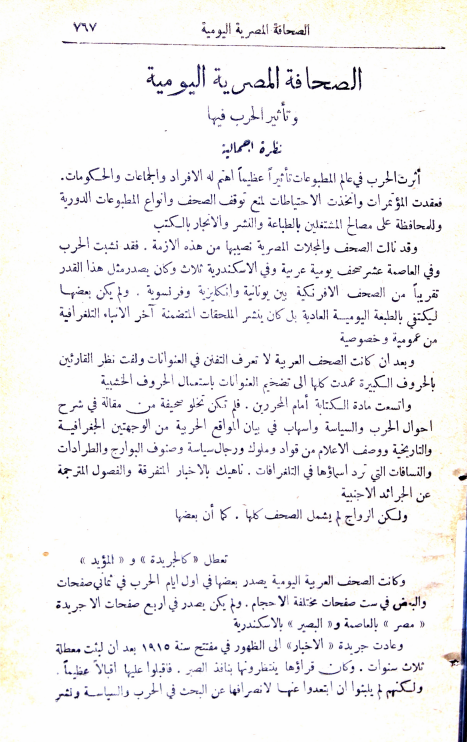 الصحافة المصرية اليومية ٧٦٧
الصحافة المصرية اليومية
وتأثير الحرب فيها
نظرة اجمالية
أثرت الحرب في عالم المطبوعات تأثيراً عظيماً اهتم له الافراد والجماعات والحكومات.
فعقدت المؤتمرات واتخذت الاحتياطات لمنع توقف الصحف وانواع المطبوعات الدورية
وللمحافظة على مصالح المشتغلين بالطباعة والنشر والاتجار بالكتب
وقد نالت الصحف والمجلات المصرية نصيبها من هذه الازمة . فقد نشبت الحرب
وفي العاصمة عشر صحف يومية عربية وفي الاسكندرية ثلاث وكان يصدر مثل هذا القدر
تقريباً من الصحف الافرنكية بين يونانية وانكليزية وفرنسوية . ولم يكن بعضها
ليكتفي بالطبعة اليومية العادية بل كان ينشر الملحقات المتضمنة آخر الانباء التلغرافية
من عمومية وخصوصية
وبعد ان كانت الصحف العربية لا تعرف التفنن في العنوانات ولفت نظر القارئين
بالحروف الكبيرة عمدت كلها الى تضخيم العنوانات باستعمال الحروف الخشبية
واتسعت مادة الكتابة أمام المحررين . فلم تكن تخلو صحيفة من مقالة في شرح
احوال الحرب والسياسة واسهاب في بيان المواقع الحربية من الوجهتين الجغرافية
والتاريخية ووصف الاعلام من قواد وملوك ورجال سياسة وصنوف البوارج والطرادات
والنسافات التي ترد أسماؤها في التلغرافات . ناهيك بالاخبار المتفرقة والفصول المترجمة
عن الجرائد الاجنبية
ولكن الرواج لم يشمل الصحف كلها . كما أن بعضها
تعطل « كالجريدة » و « المؤيد »
وكانت الصحف العربية اليومية يصدر بعضها في اول ايام الحرب في ثماني صفحات
والبعض في ست صفحات مختلفة الاحجام . ولم يكن يصدر في اربع صفحات الا جريدة
« مصر » بالعاصمة و« البصير » بالاسكندرية
وعادت جريدة « الاخبار » الى الظهور في مفتتح سنة ١٩١٥ بعد ان لبثت معطلة
ثلاث سنوات . وكان قراؤها ينتظرونها بنافذ الصبر . فاقبلوا عليها اقبالاً عظيماً .
ولكنهم لم يلبثوا ان ابتعدوا عنها لانصرافها عن البحث في الحرب والسياسة ونشر